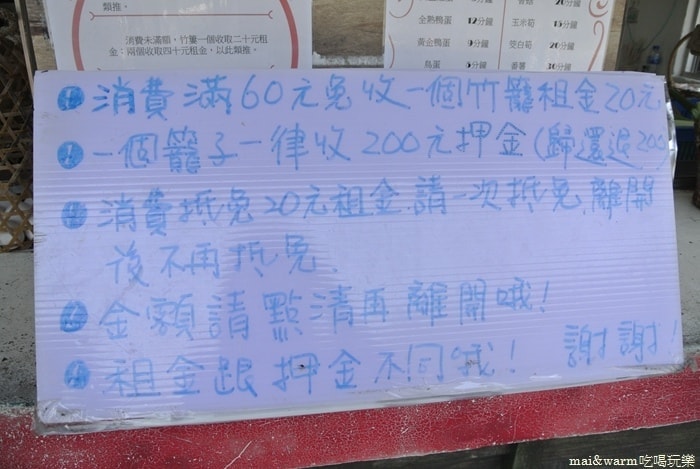 類推。
消費未滿額，竹簍一個收取二十元租
金；兩個收取四十元租金，以此類推。
全熟鴨蛋 12分鐘
黃金鴨蛋 9分鐘
鳥蛋
20分鐘
玉米筍 15分鐘
茭白筍 20分鐘
番薯 30分鐘
消費滿60元免收一個竹籠租金20元
一個籠子一律收200元押金(歸還退200)
消費抵免20元租金請一次抵免,離開
後不再抵免
金額請點清再離開哦!
租金跟押金不同哦! 謝謝!
mai&warm吃喝玩樂